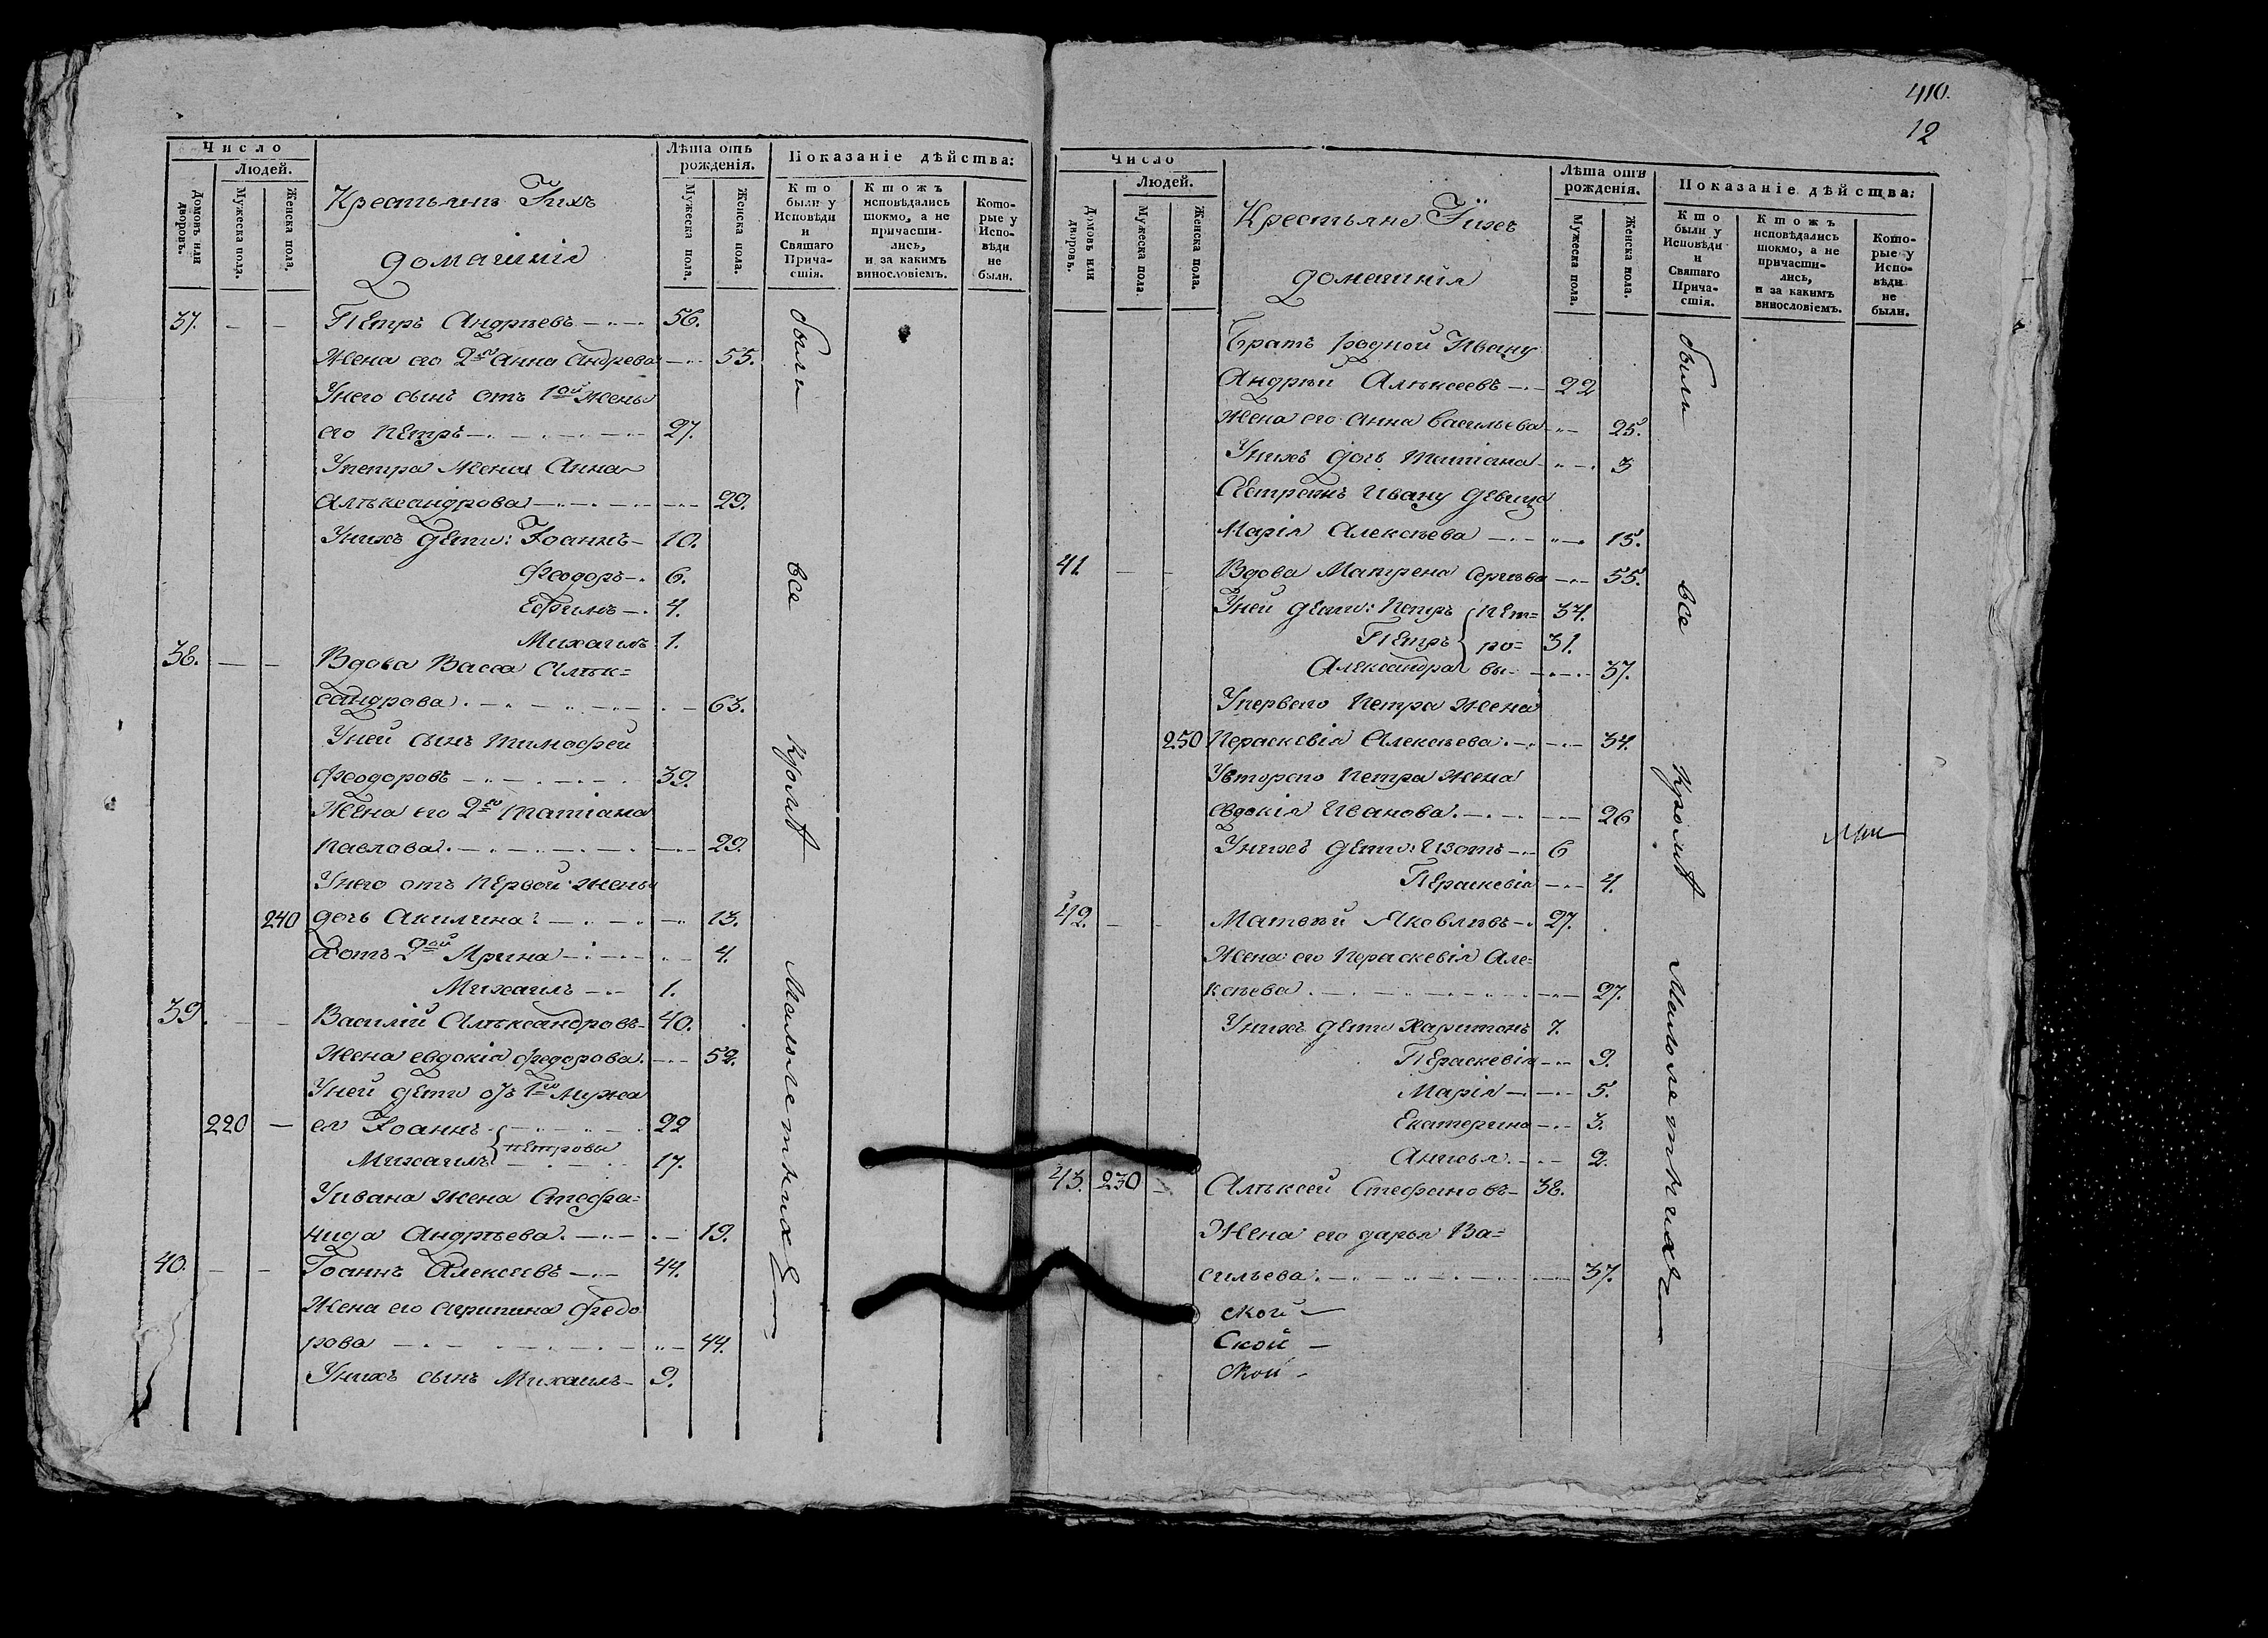 Число
Людей.
Домовъ или дворовъ.
Мужеска пола.
Женска пола.
Крестьянѣ Ихъ
домашнія
Лѣта отъ рожденія.
Мужеска пола.
Женска пола.
Показаніе дѣйства:
Кто были у Исповѣди и Святаго Прича-стія.
Ктожъ исповѣдались токмо, а не причасти-лись, и за какимъ винословіемъ.
Кото-рые у Испо-вѣди не были.
37. — — Петръ Андрѣевъ 56.
Жена его 2я Анна Андрева 55.
Унего сынъ отъ 1ой жены
его Петръ 27.
Упетра жена Анна
Алѣксандрова 29.
Унихъ дети: Іоаннъ 10.
Феодоръ 6.
Ефимъ 4.
Михаилъ 1.
38. — — Вдова Васса Алѣк=
сандрова 63.
Уней сынъ Тимофей
Феодоровъ 39.
Жена его 2я Татіана
Павлова 29.
Унего отъ первой жены
240 дочь Акилина 13.
а отъ 2ой Ирина 4.
Михаилъ 1.
39. — — Василій Алѣксандровъ 40.
Жена евдокія федорова 52.
Уней дети отъ 1го мужа
220 — ея Іоаннъ 22
Михаилъ Петровы 17.
Уивана жена Стефа=
нида Андрѣева 19.
40. — — Іоаннъ Алексеевъ 44.
Жена его Агрипина Федо
рова 44.
Унихъ сынъ Михаилъ 9.
были все кромѣ Малолетнихъ
410.
12
Число
Людей.
Домовъ или дворовъ.
Мужеска пола.
Женска пола.
Крестьяне Ихъ
домашнія
Лѣта отъ рожденія.
Мужеска пола.
Женска пола.
Показаніе дѣйства:
Кто были у Исповѣди и Святаго Прича-стія.
Ктожъ исповѣдались токмо, а не причасти-лись, и за какимъ винословіемъ.
Кото-рые у Испо-вѣди не были.
Братъ родной Ивану
Андрѣй Алѣксеевъ 22
Жена его Анна Васильева 25.
Унихъ дочь Татіана 3
Сестра Ивану девица
Марія Алексѣева 15.
41. — — Вдова Матрена Сергѣва 55.
Уней дети: Петръ Пет= 34.
Петръ ро= 31.
Александра вы 37.
Упервого Петра жена
250 Параскевія Алексѣева 34.
Увторого Петра жена
Евдокія Иванова 26
Унихъ дети: Изотъ 6
Параскевія 4.
42. — — Матвѣй Яковлевъ 27.
Жена его Параскевія Але=
ксѣева 27.
Унихъ дети Харитонъ 7.
Параскевія 9.
Марія 5.
Екатерина 3.
Анисья 2.
43. 230 — Алѣксей Стефановъ 38.
Жена его дарья Ва=
сильева 37.
ской —
Ской —
ской —
были все кромѣ Малолетнихъ